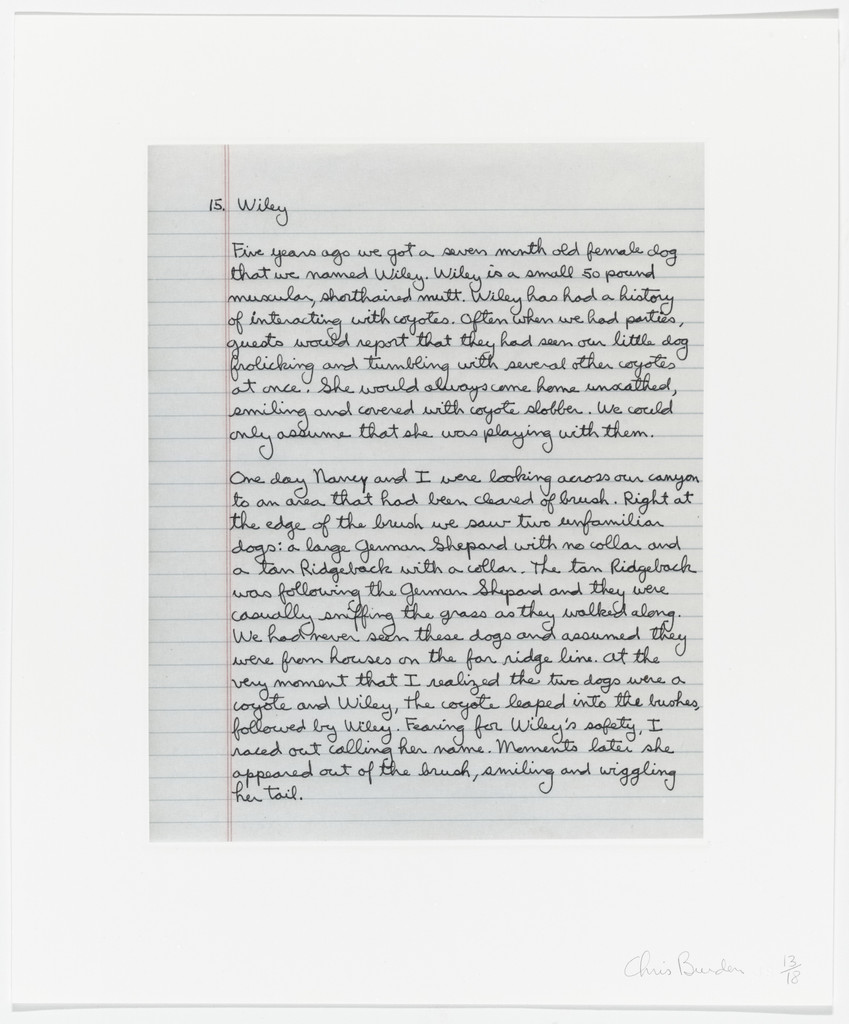 15. Wiley
Five years ago we got a seven month old female dog
that we named Wiley. Wiley is a small 50 pound
muscular, shorthaired mutt. Wiley has had a history
of interacting with coyotes. Often when we had parties,
guests would report that they had seen our little dog
frolicking and tumbling with several other coyotes
at once. She would always come home unscathed,
smiling and covered with coyote slobber. We could
only assume that she was playing with them.
One day Nancy and I were looking across our canyon
to an area that had been cleared of brush. Right at
the edge of the brush we saw two unfamiliar
dogs: a large German Shepard with no collar and
a tan Ridgeback with a collar. The tan Ridgeback
was following the German Shepard and they were
casually sniffing the grass as they walked along.
We had never seen these dogs and assumed they
were from houses on the far ridge line. At the
very moment that I realized the two dogs were a
coyote and Wiley, the coyote leaped into the bushes,
followed by Wiley. Fearing for Wiley's safety, I
raced out calling her name. Moments later she
appeared out of the brush, smiling and wiggling
her tail.
Chris Burden 13/18